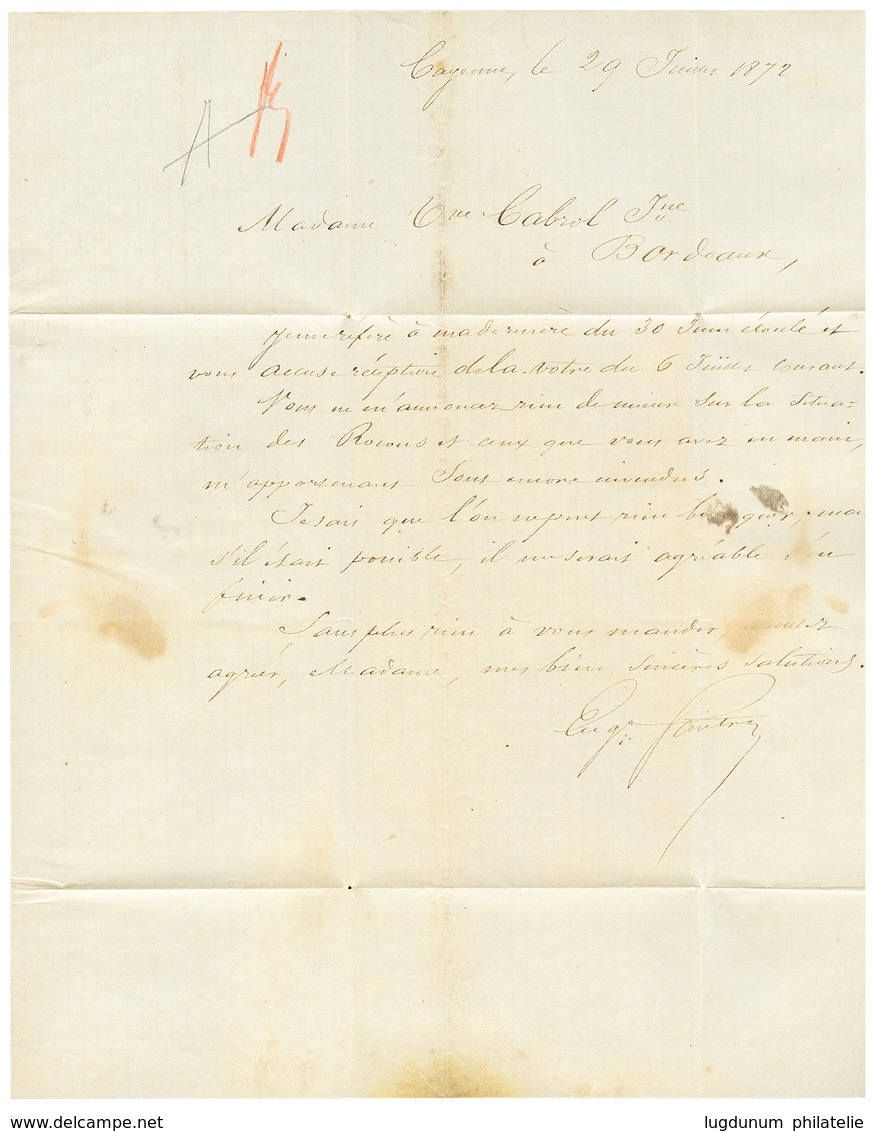 Cayenne, le 29 Juillet 1872
Madame Vve Cabrol Jne
à Bordeaux,
Je me réfère à ma dernière du 30 Juin écoulé et
vous accuse réception de la votre du 6 Juillet courant.
Vous ne m'annoncez rien de mieux sur la situa=
tion des Rocous et ceux que vous avez en main,
m'appartenant sont encore invendus.
Je sais que l'on ne peut rien
s'il était possible, il me serait agréable d'en
finir.
Sans plus rien à vous mander, veuillez
agréer, Madame, mes bien sincères salutions.
Eugе.
www.delcampe.net
lugdunum philatelie